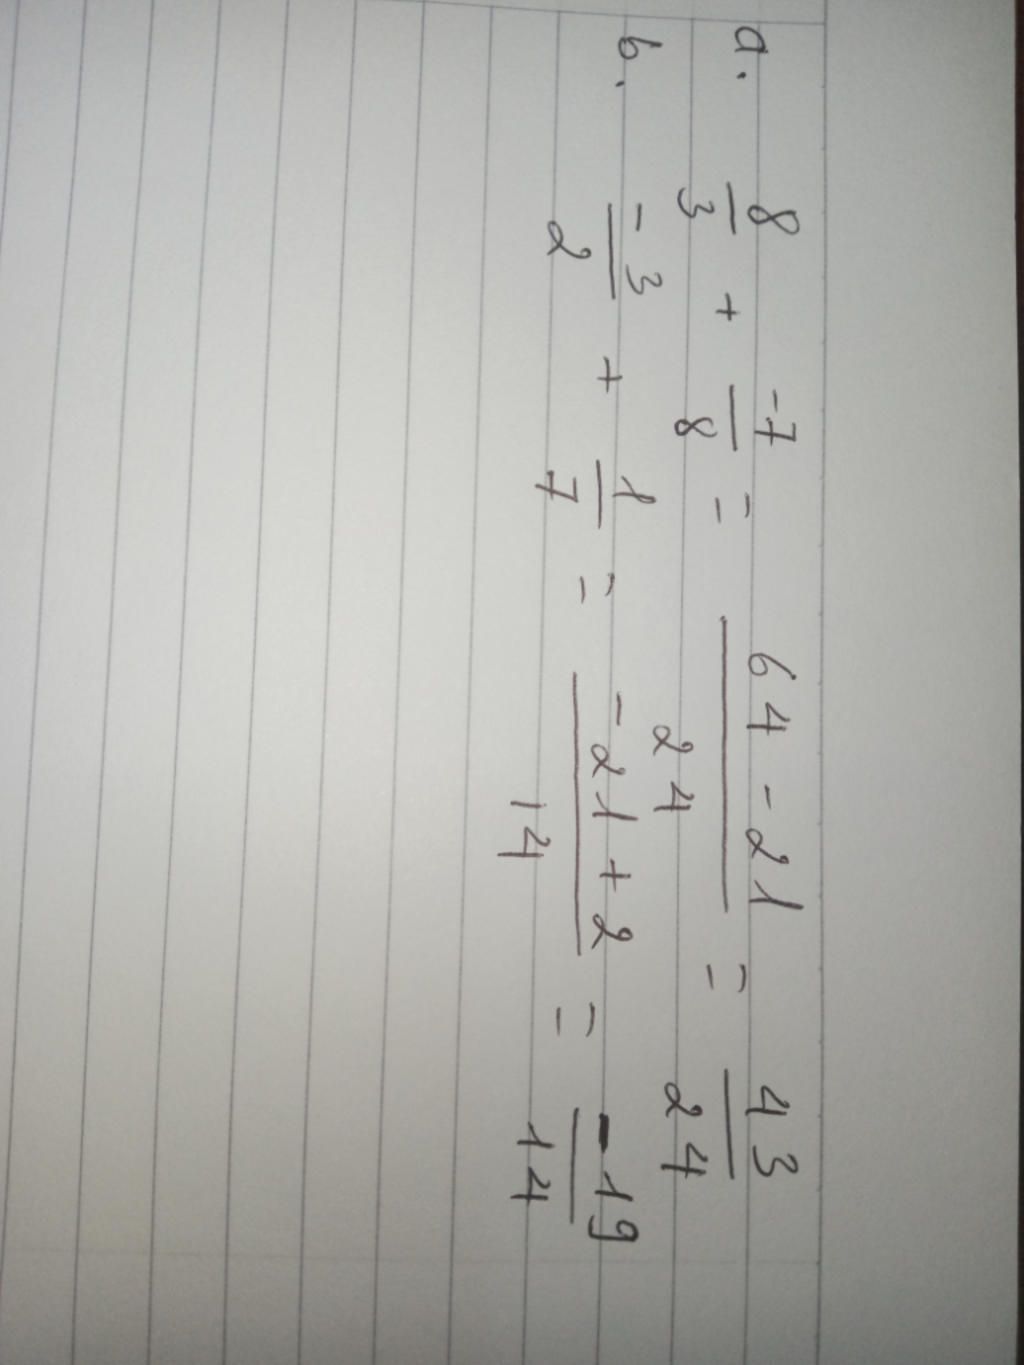 a. 8/3 + -7/8 = 64 - 21/24 = 43/24
b. -3/2 + 1/7 = -21 + 2/14 = -19/14